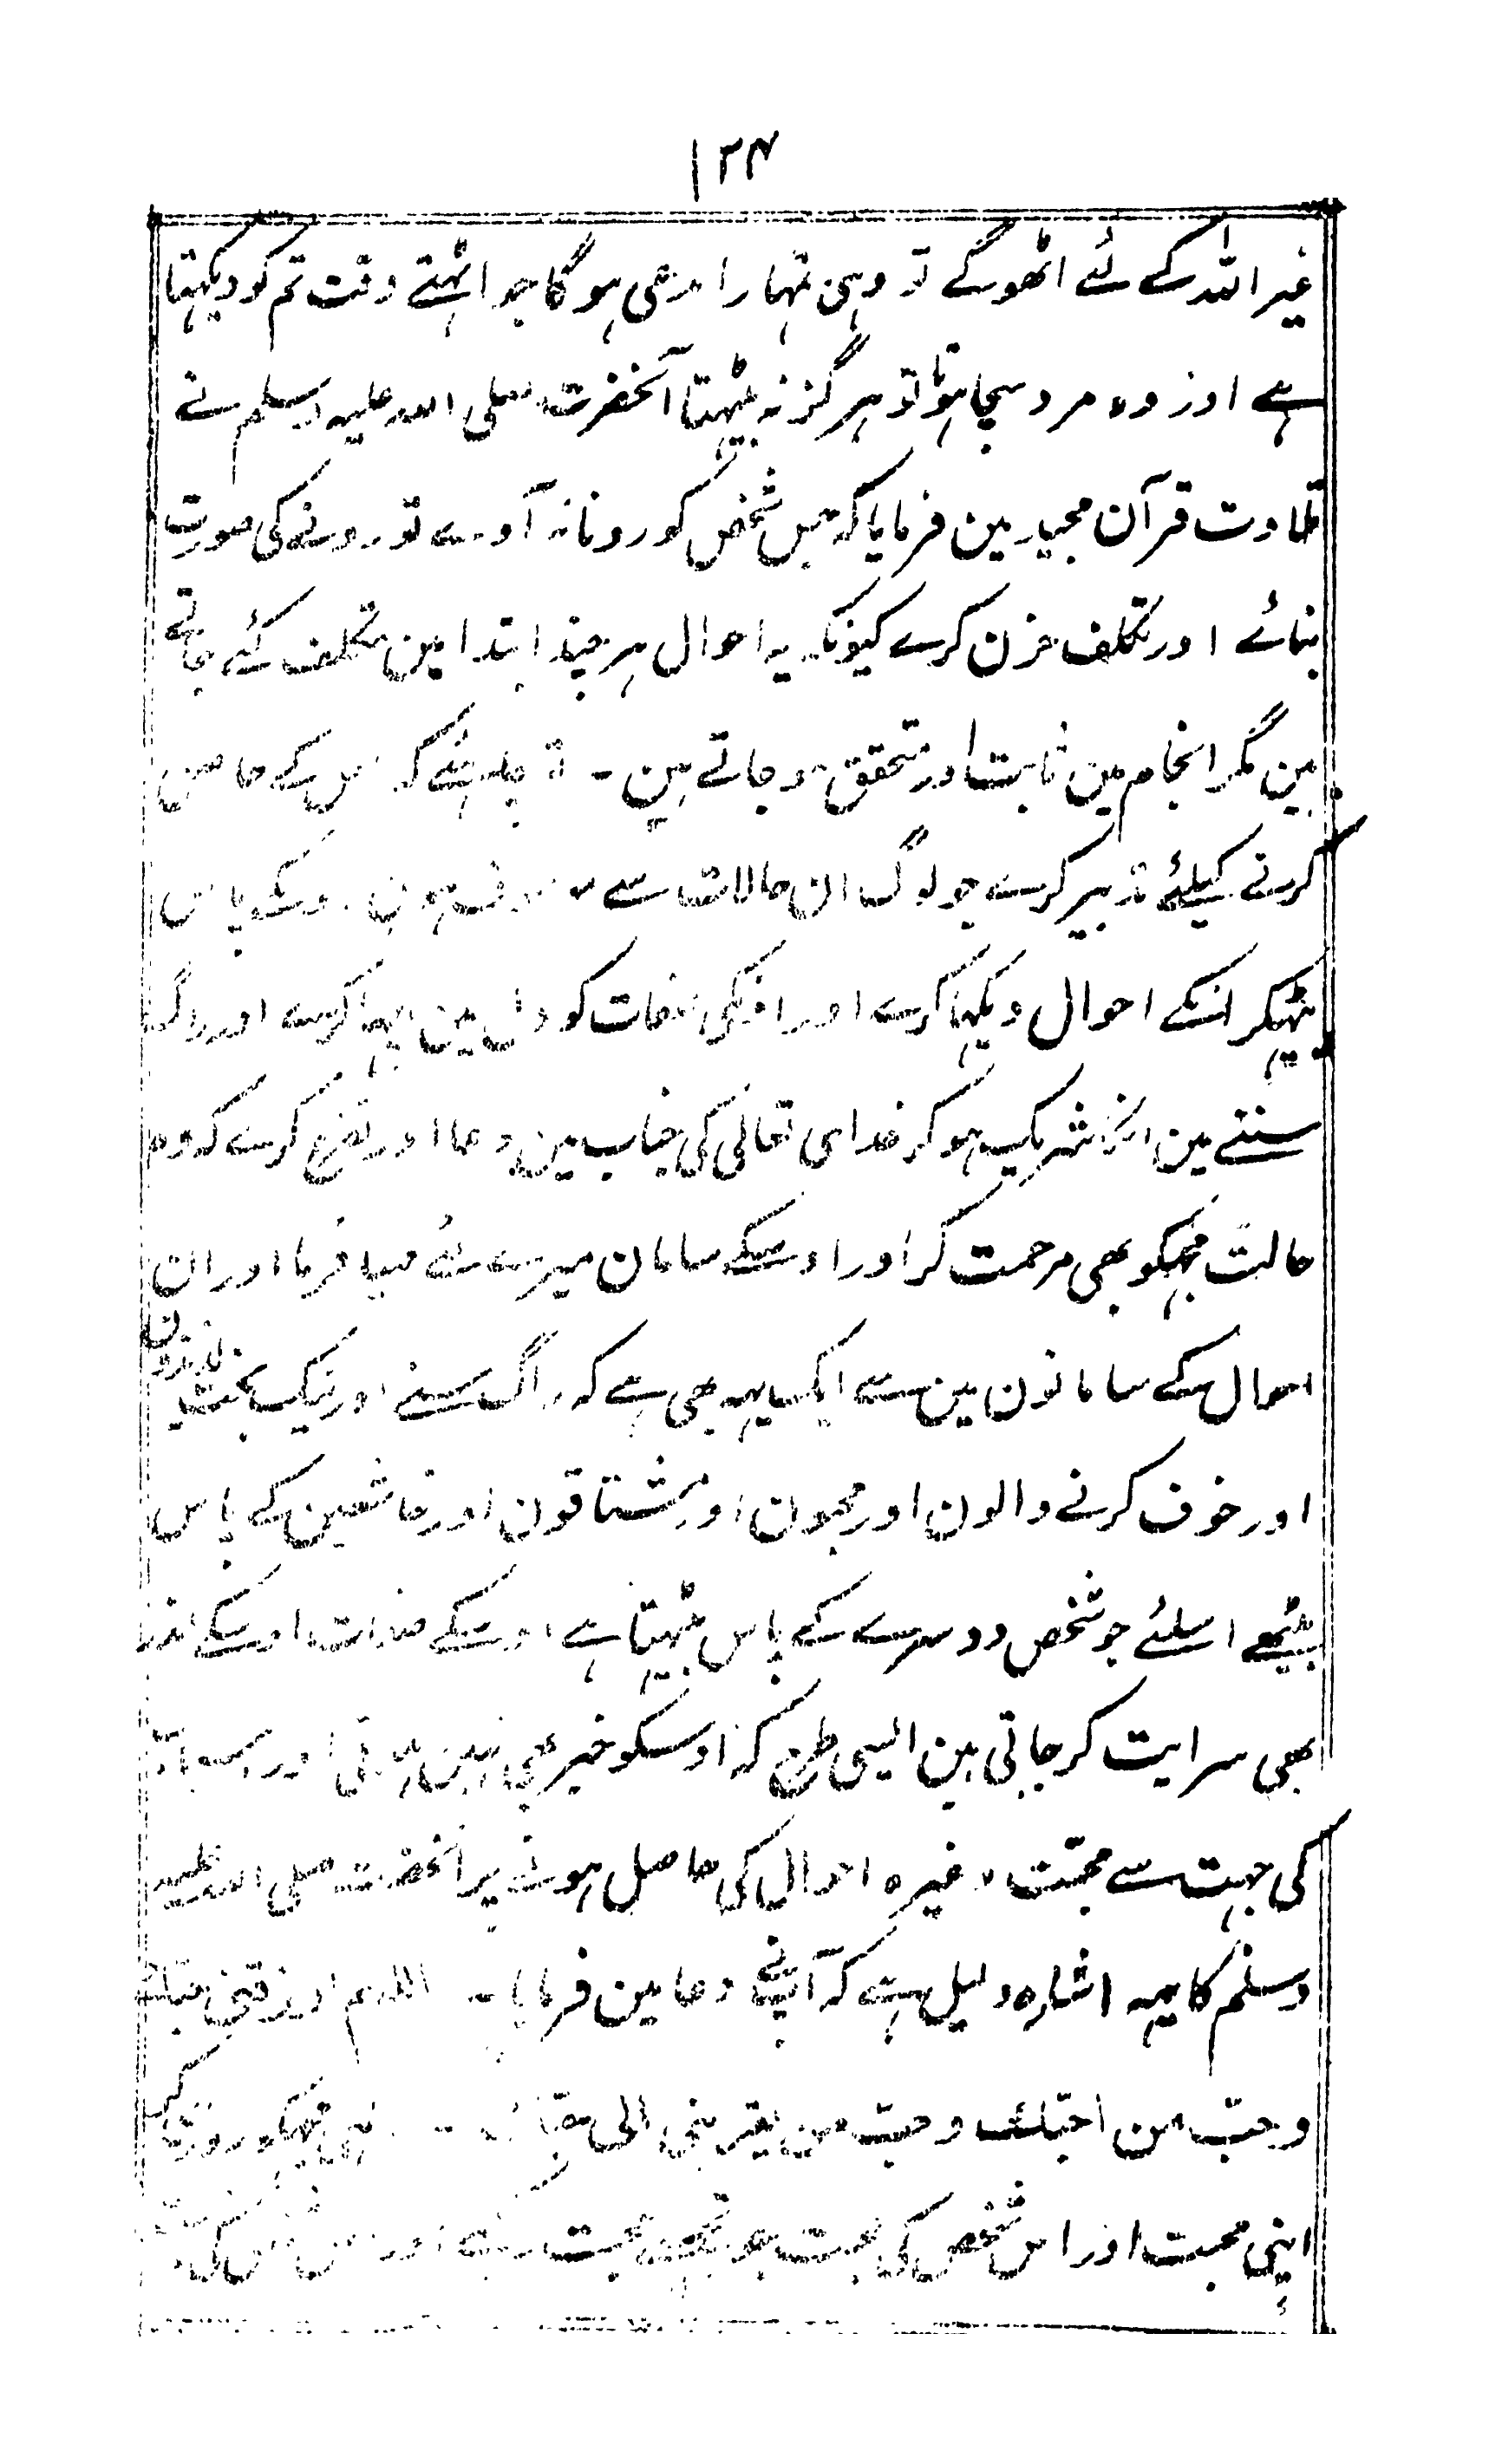 ۱۳۴
غیر اللہ کے لئے اٹھو گے تو وہی تمہارا مدعی ہوگا جو اٹہتے وقت تم کو دیکہتا
ہے اور وہ مرد سچا ہوتا تو ہرگز نہ بیٹہتا آنحضرت صلی اللہ علیہ وسلم نے
تلاوت قرآن مجید مین فرمایا کہ جس شخص کو رونا نہ آوے تو رونے کی صورت
بنائے اور تکلف حزن کرے کیونکہ یہ احوال ہر چند ابتدا مین متکلف کئے جاتے
ہین مگر انجام مین ثابت اور متحقق ہو جاتے ہین - چاہئے کہ اس کے حاصل
کرنے کیلئے تدبیر کرے جو لوگ ان حالات سے موصوف ہون پاس
بیٹہکر انکے احوال دیکہا کرے اور انکی صفات کو دل مین کرے اور راگ
سننے مین انکا شریک ہو کر خدای تعالی کی جناب مین دعا اور تضرع کرے کہ وہ
حالت مجہکو بھی مرحمت کر اور اوسکے سامان میرے لئے مہیا فرما اور ان
احوال کے سامانون مین سے ایک یہہ بھی ہے کہ راگ سنے اور نیک بخت
اور خوف کرنے والون اور محبون اور مشتاقون اور خاشعین کے پاس
بیٹھے اسلئے جو شخص دوسرے کے پاس بیٹہتا ہے اوسکے صفات اوسکے اندر
بھی سرایت کر جاتی ہین ایسی طرح کہ اوسکو خبر بھی نہین ہوتی اور
کی جہت سے محبّت وغیرہ احوال کی حاصل ہونے پر آنحضرت صلی اللہ علیہ
وسلم کا یہہ اشارہ دلیل ہے کہ آپنے دعا مین فرمایا - اللہم ارزقنی حبّک
و حبّ من احبّک و حبّ من یقربنی الی حبّک - مجہکو روزی کر
اپنی محبت اور اس شخص کی محبت جو تجہسے محبت رکہے اور